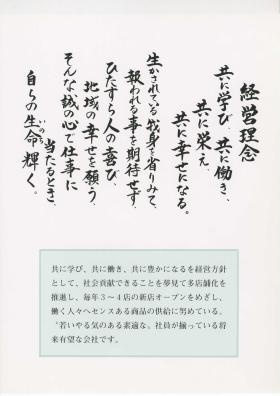 経営理念
共に学び、共に働き、
共に栄え、
共に幸せになる。
生かされている我身を省りみて、
報われる事を期待せず、
ひたすら人の喜び、
地域の幸せを願う、
そんな誠の心で仕事に
当たるとき、
自らの生命輝く。
いのち
共に学び、共に働き、共に豊かになるを経営方針
として、社会貢献できることを夢見て多店舗化を
推進し、毎年3〜4店の新店オープンをめざし、
働く人々へセンスある商品の供給に努めている。
〝若いやる気のある素適な〟社員が揃っている将
来有望な会社です。